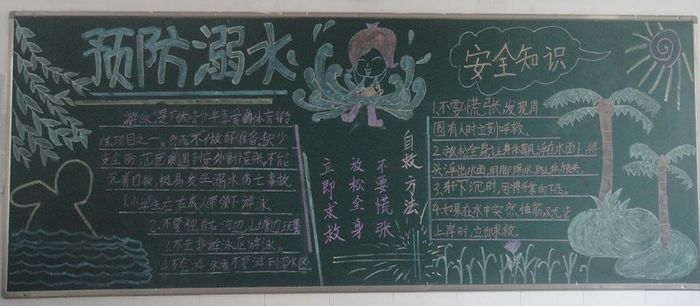 预防溺水
游泳是广大青少年喜爱的体育锻
炼项目之一。然而不做好准备、缺少
安全防范意识,遇到意外时慌张、不能
沉着自救,极易发生溺水伤亡事故。
1.小学生应在成人带领下游泳。
2.不要独自在河边、山塘边玩耍
3.不去非游泳区游泳。
4.不会游泳者不要游到深水区
自救方法!
不要慌张
放松全身
立即求救
安全知识
1.不要慌张,发现周
围有人时立刻呼救。
2.放松全身,让身体飘浮在水面上,将
头浮出水面,用脚踢水,防止体力丧失。
3.身体下沉时,可将手掌向下压。
4.如果在水中突然抽筋,又无法
上岸时,立即求救。